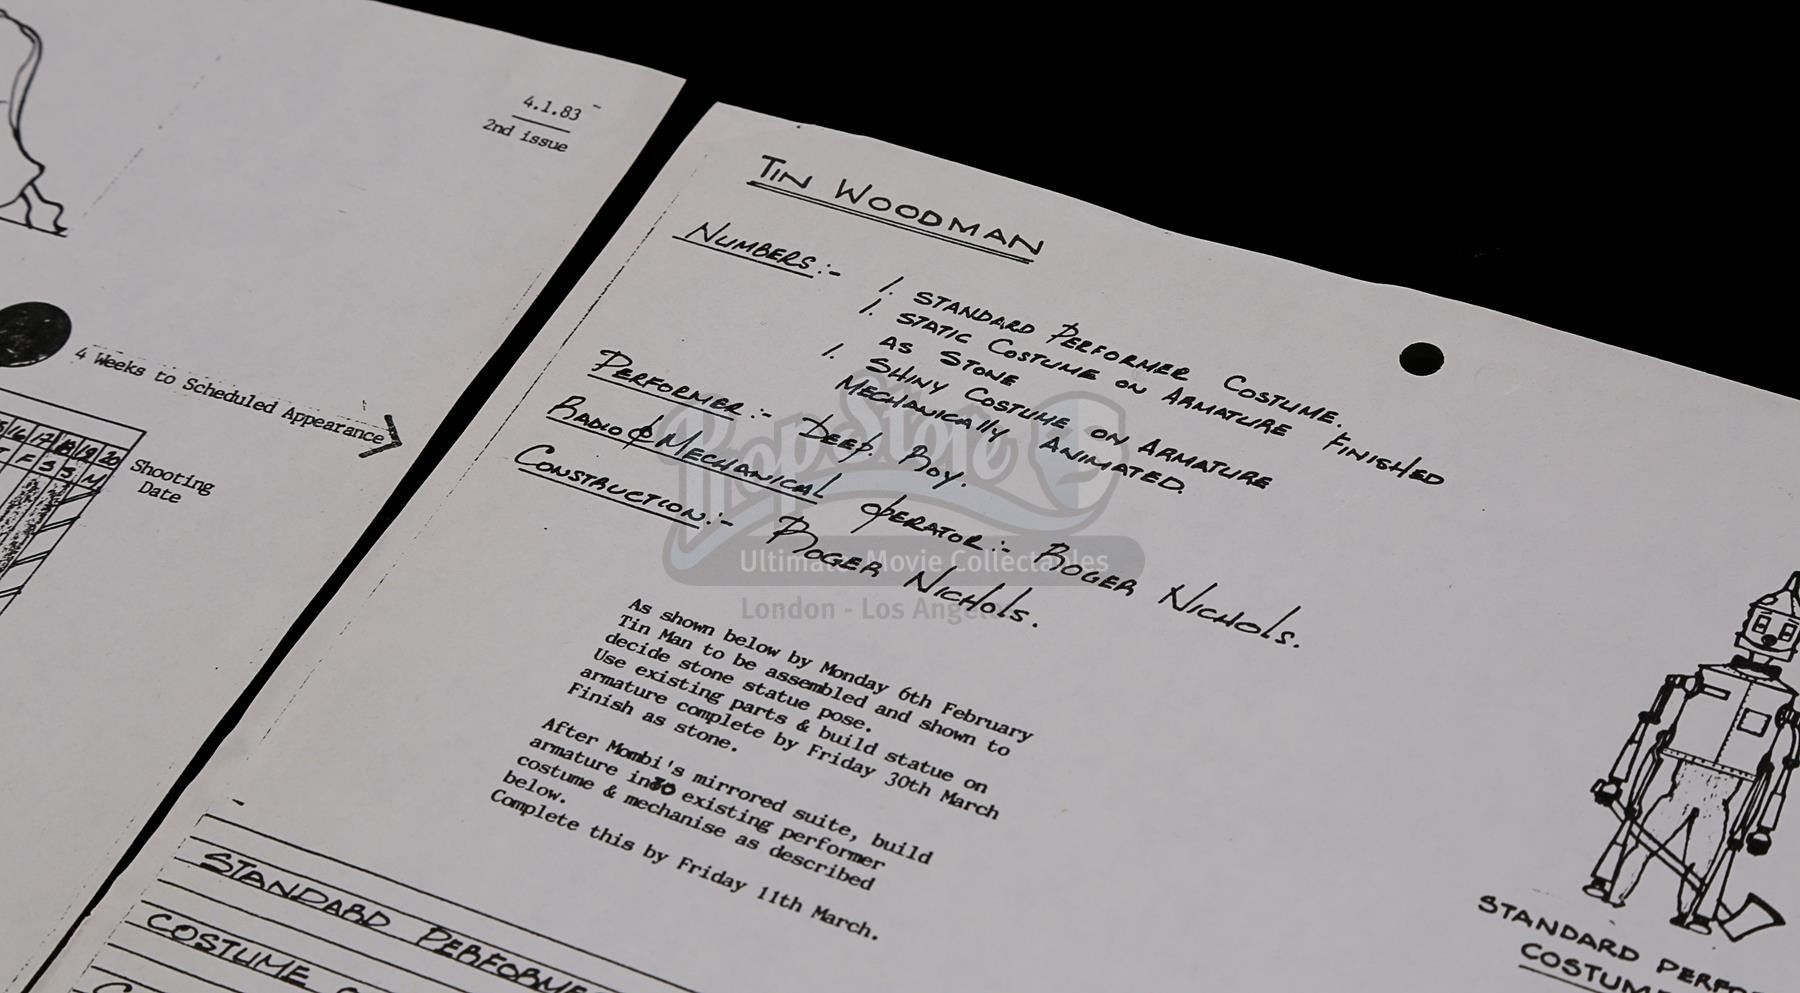 4.1.83
2nd issue
4 Weeks to Scheduled Appearance
16 17 18 19 20
F S S M
Shooting
Date
TIN WOODMAN
NUMBERS:-
1. STANDARD PERFORMER COSTUME.
1. STATIC COSTUME ON ARMATURE FINISHED
AS STONE
1. SHINY COSTUME ON ARMATURE
MECHANICALLY ANIMATED.
PERFORMER:- DEEP. ROY.
RADIO & MECHANICAL OPERATOR:- ROGER NICHOLS.
CONSTRUCTION:- ROGER NICHOLS.
As shown below by Monday 6th February
Tin Man to be assembled and shown to
decide stone statue pose.
Use existing parts & build statue on
armature complete by Friday 30th March
Finish as stone.
After Mombi's mirrored suite, build
armature into existing performer
costume & mechanise as described
below.
Complete this by Friday 11th March.
STANDARD PERFORME
COSTUME
STANDARD PERFO
COSTUM
Prop Store
Ultimate Movie Collectables
London - Los Angeles